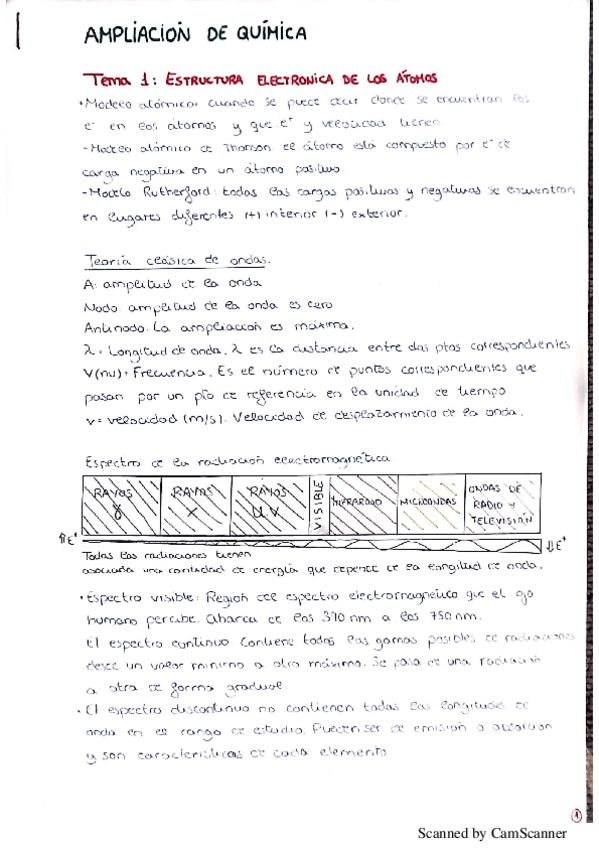 AMPLIACION DE QUÍMICA
Tema 1: ESTRUCTURA ELECTRONICA DE LOS ÁTOMOS
• Modelo atómico: cuando se puede decir donde se encuentran los
e⁻ en los átomos y que E⁺ y velocidad tienen.
- Modelo atómico de Thomson: el átomo está compuesto por e⁻ de
carga negativa en un átomo positivo.
- Modelo Rutherford: todas las cargas positivas y negativas se encuentran
en lugares diferentes (+) interior (-) exterior.
Teoría clásica de ondas.
A: amplitud de la onda
Nodo: amplitud de la onda es cero
Antinodo. La ampliación es máxima.
λ = Longitud de onda. λ es la distancia entre dos ptos correspondientes
V(nu) = Frecuencia. Es el número de puntos correspondientes que
pasan por un pto de referencia en la unidad de tiempo
v = velocidad (m/s). Velocidad de desplazamiento de la onda.
Espectro de la radiación electromagnética
RAYOS γ RAYOS X RAYOS UV VISIBLE INFRAROJO MICROONDAS ONDAS DE RADIO Y TELEVISIÓN
⇑E⁺ ⇓E⁺
Todas las radiaciones tienen
asociada una cantidad de energía que depende de la longitud de onda.
• Espectro visible: Región del espectro electromagnético que el ojo
humano percibe. Abarca de los 390 nm a los 750 nm.
El espectro continuo. Contiene todas las gamas posibles de radiaciones
desde un valor mínimo a otro máximo. Se pasa de una radiación
a otra de forma gradual.
• El espectro discontinuo no contienen todas las longitudes de
onda en el rango de estudio. Pueden ser de emisión o absorción
y son características de cada elemento
1
Scanned by CamScanner